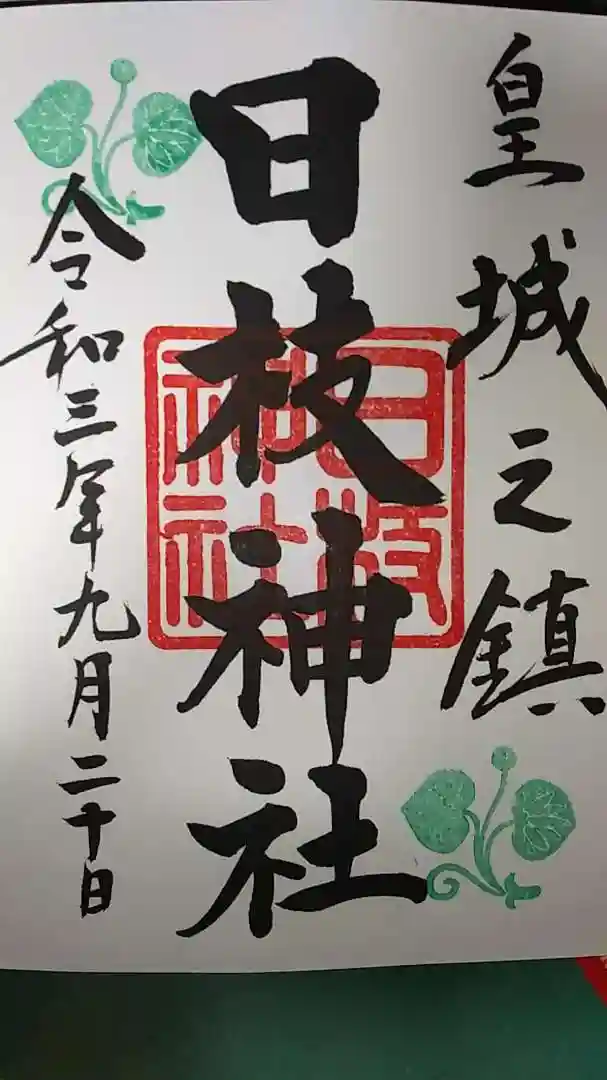 皇城之鎮
日枝神社
日枝神社
令和三年九月二十日